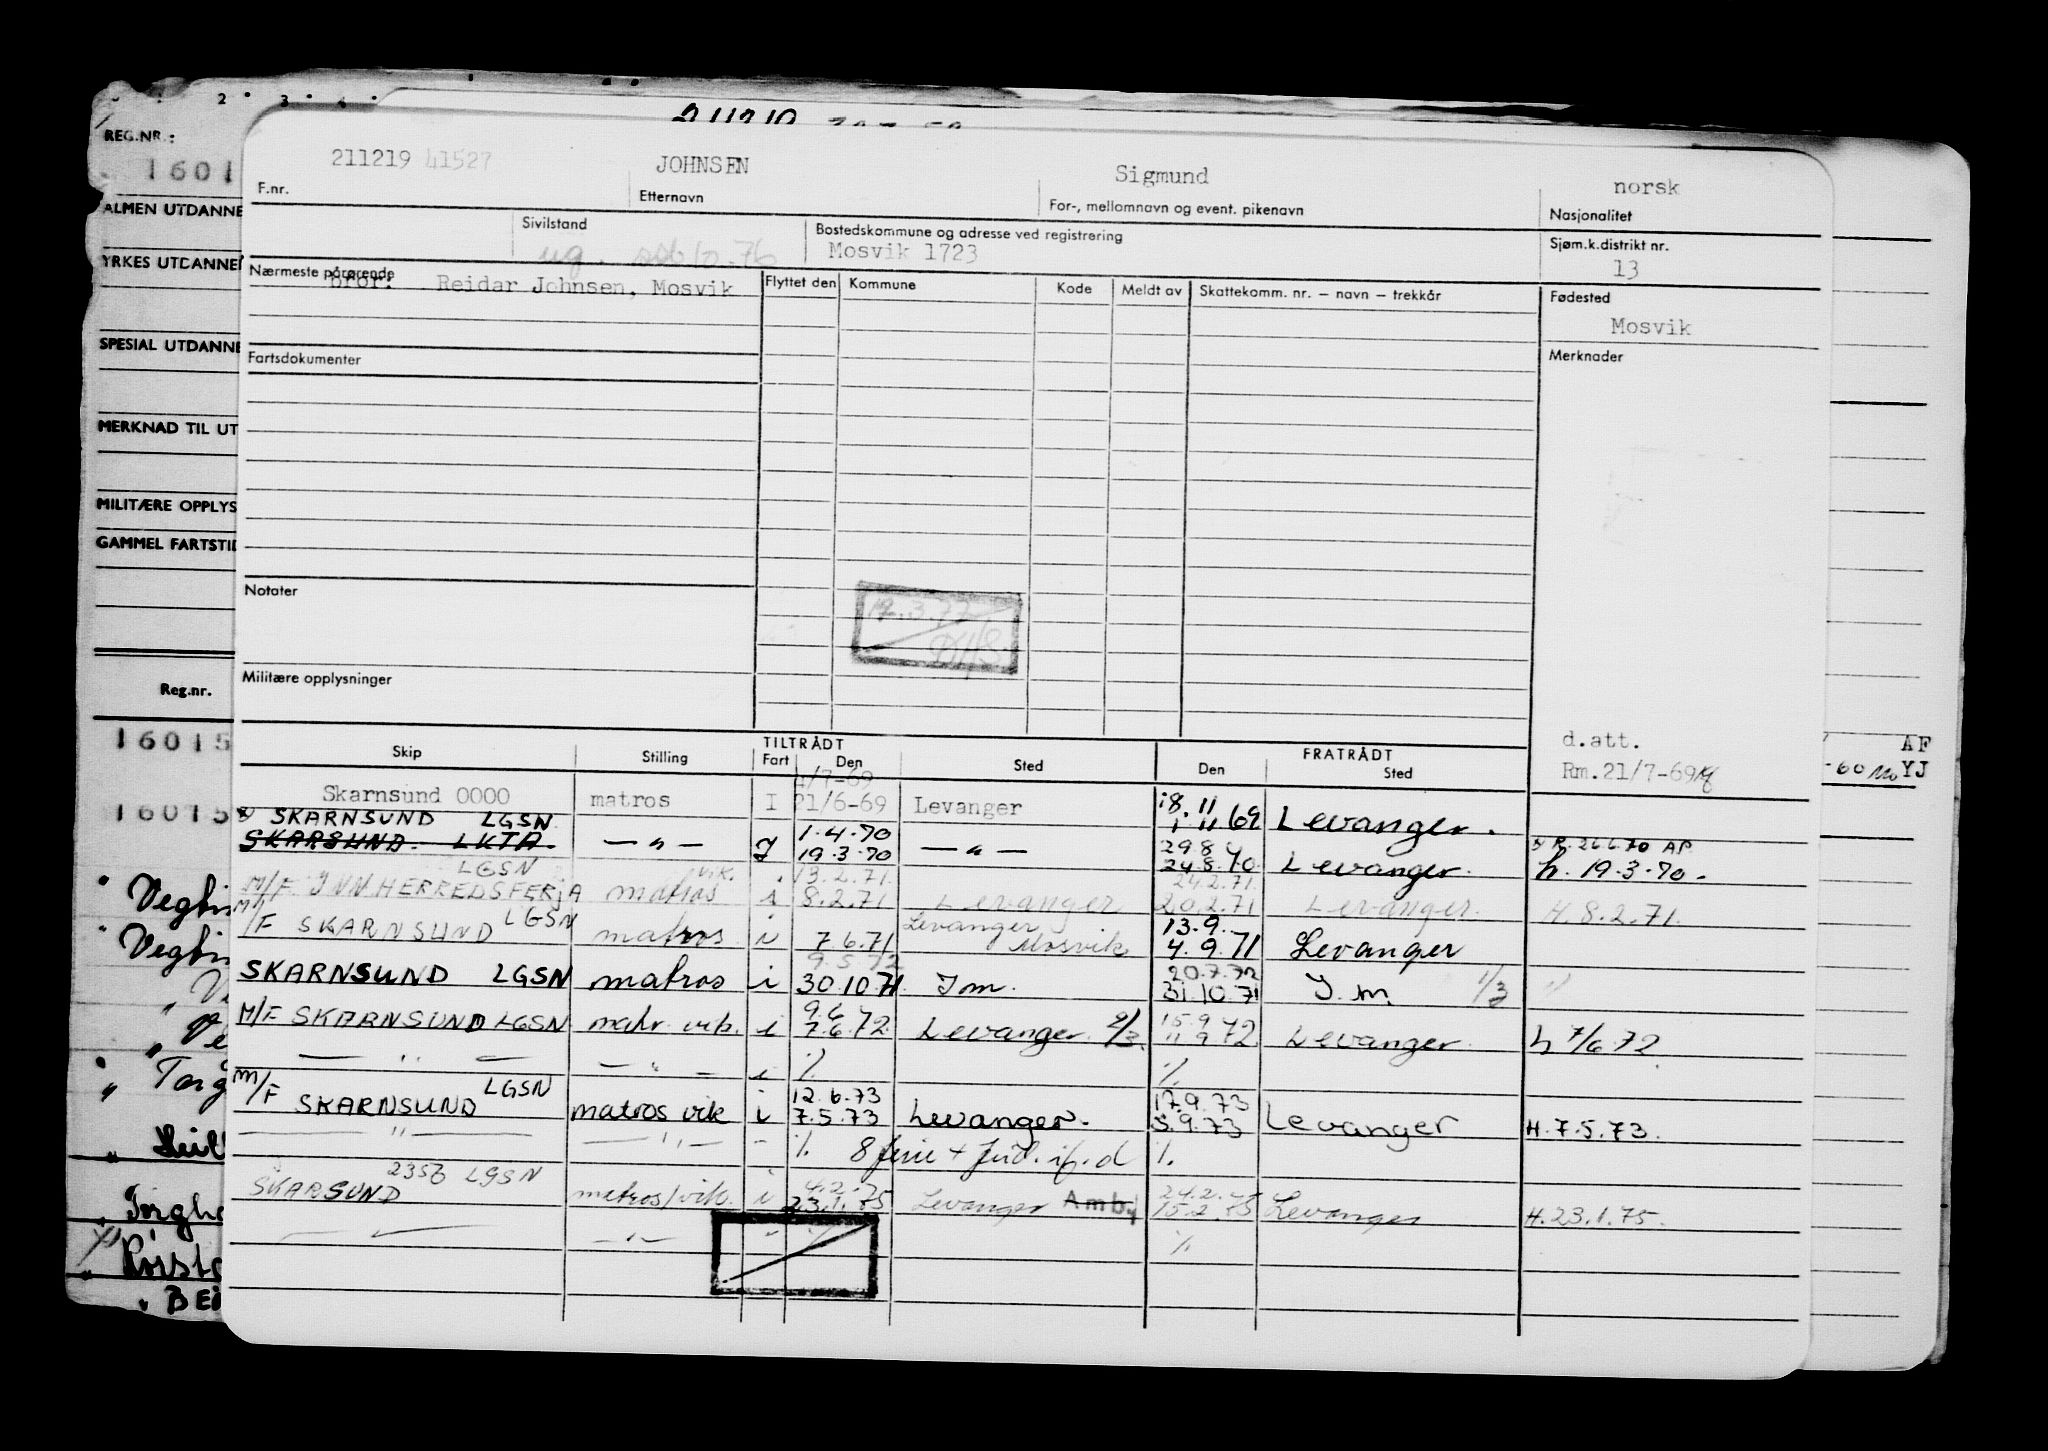 2 3 4
211219
REG.NR.:
1601
211219 41527 JOHNSEN Sigmund norsk
F.nr. Etternavn For-, mellomnavn og event. pikenavn Nasjonalitet
ALMEN UTDANNE
Sivilstand Bostedskommune og adresse ved registrering Sjøm.k.distrikt nr.
ug. Mosvik 1723 13
YRKES UTDANNE
Nærmeste pårørende Flyttet den Kommune Kode Meldt av Skattekomm. nr. – navn – trekkår Fødested
bror: Reidar Johnsen, Mosvik
Mosvik
SPESIAL UTDANNE
Fartsdokumenter Merknader
MERKNAD TIL UT
MILITÆRE OPPLYS
GAMMEL FARTSTID
Notater
12.3.77
Militære opplysninger
Reg.nr.
16015
d.att.
AF
Skip Stilling TILTRÅDT FRATRÅDT
Fart Den Sted Den Sted
Rm.21/7-69
-60 YJ
4/7-69
Skarnsund 0000 matros I 21/6-69 Levanger 18.11 1.11 69 Levanger.
16015
SKARNSUND LGSN
SKARSUND. LKTA — " — I 1.4.70 19.3.70 — " — 29.8 24.8.70 Levanger. R. 26.6.70 AP. h. 19.3.70.
LGSN
M/F INNHERREDSFERJA matros vik. i 13.2.71. 8.2.71 Levanger 24.2.71. 20.2.71 Levanger. H. 8.2.71.
M/F SKARNSUND LGSN matros i 7.6.71 Levanger Mosvik 13.9. 4.9.71 Levanger
SKARNSUND LGSN matros i 9.5.72 30.10.71 Im. 20.7.72 31.10.71 I.m. 1/3 "
M/F SKARNSUND LGSN matr. vik. i 9.6 7.6.72. Levanger. 2/3. 15.9 11.9 72 Levanger. h 7/6.72
— " — — " — i % %
M/F SKARNSUND LGSN matros vik i 12.6.73 7.5.73 Levanger. 17.9.73 5.9.73 Levanger H. 7.5.73.
— " — — " — - %. 8 ferie + frid. if. d %.
SKARSUND 2356 LGSN matros/vik. i 4.2.75 23.1.75 Levanger Amb. 24.2. 15.2.75 Levanger H. 23.1.75.
— " — — " — " % %